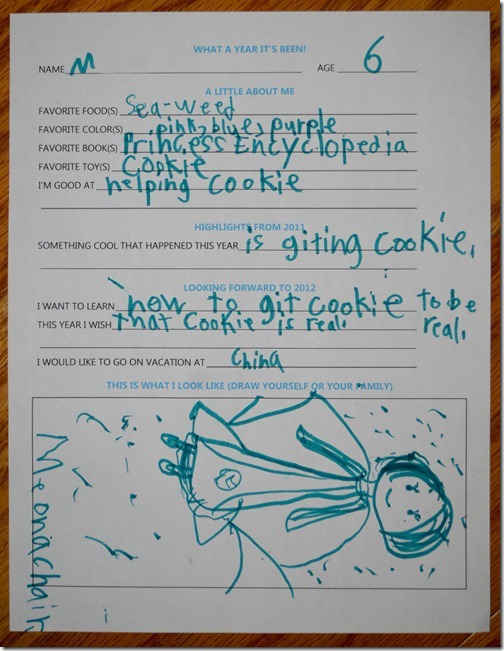 WHAT A YEAR IT'S BEEN!
NAME M AGE 6
A LITTLE ABOUT ME
FAVORITE FOOD(S) Sea-weed
FAVORITE COLOR(S) pink, blue, purple
FAVORITE BOOK(S) Princess Encyclopedia
FAVORITE TOY(S) Cookie
I'M GOOD AT helping Cookie
HIGHLIGHTS FROM 2011
SOMETHING COOL THAT HAPPENED THIS YEAR is giting Cookie.
LOOKING FORWARD TO 2012
I WANT TO LEARN how to git Cookie to be real.
THIS YEAR I WISH that Cookie is real.
I WOULD LIKE TO GO ON VACATION AT China
THIS IS WHAT I LOOK LIKE (DRAW YOURSELF OR YOUR FAMILY)
Me on a chair